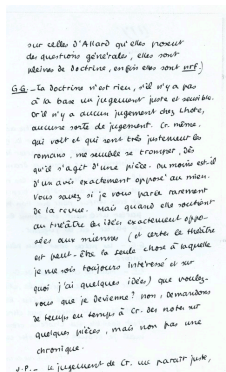 sur celles d'Allard qu'elles posent
des questions générales, elles sont
pleines de doctrine, enfin elles sont nrf.)
G.G. - La doctrine n'est rien, s'il n'y a pas
à la base un jugement juste et sensible.
Or il n'y a aucun jugement chez
aucune sorte de jugement. Cr. même,
qui voit et qui sent très justement les
romans, me semble se tromper, dès
qu'il s'agit d'une pièce. Du moins est-il
d'un avis exactement opposé au mien.
Vous savez si je vous parle rarement
de la revue. Mais quand elle soutient
au théâtre les idées exactement oppo-
sées aux miennes (et certes le théâtre
est peut-être la seule chose à laquelle
je me sois toujours intéressé et sur
quoi j'ai quelques idées) que voulez-
vous que je devienne ? Non, demandons
de temps en temps à Cr. des notes sur
quelques pièces, mais non pas une
chronique.
J.P. - Le jugement de Cr. me paraît juste,